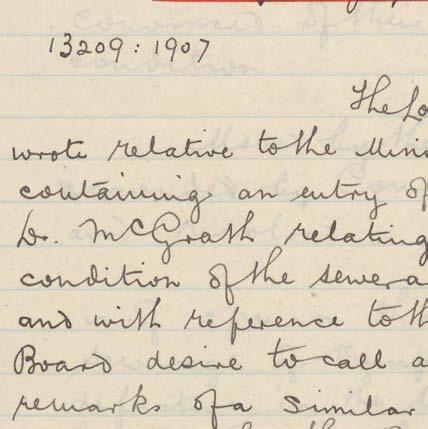 13209: 1907
The Lo
wrote relative to the Minu
containing an entry of
Dr. McGrath relating
condition of the sewera
and with reference to th
Board desire to call a
remarks of a similar